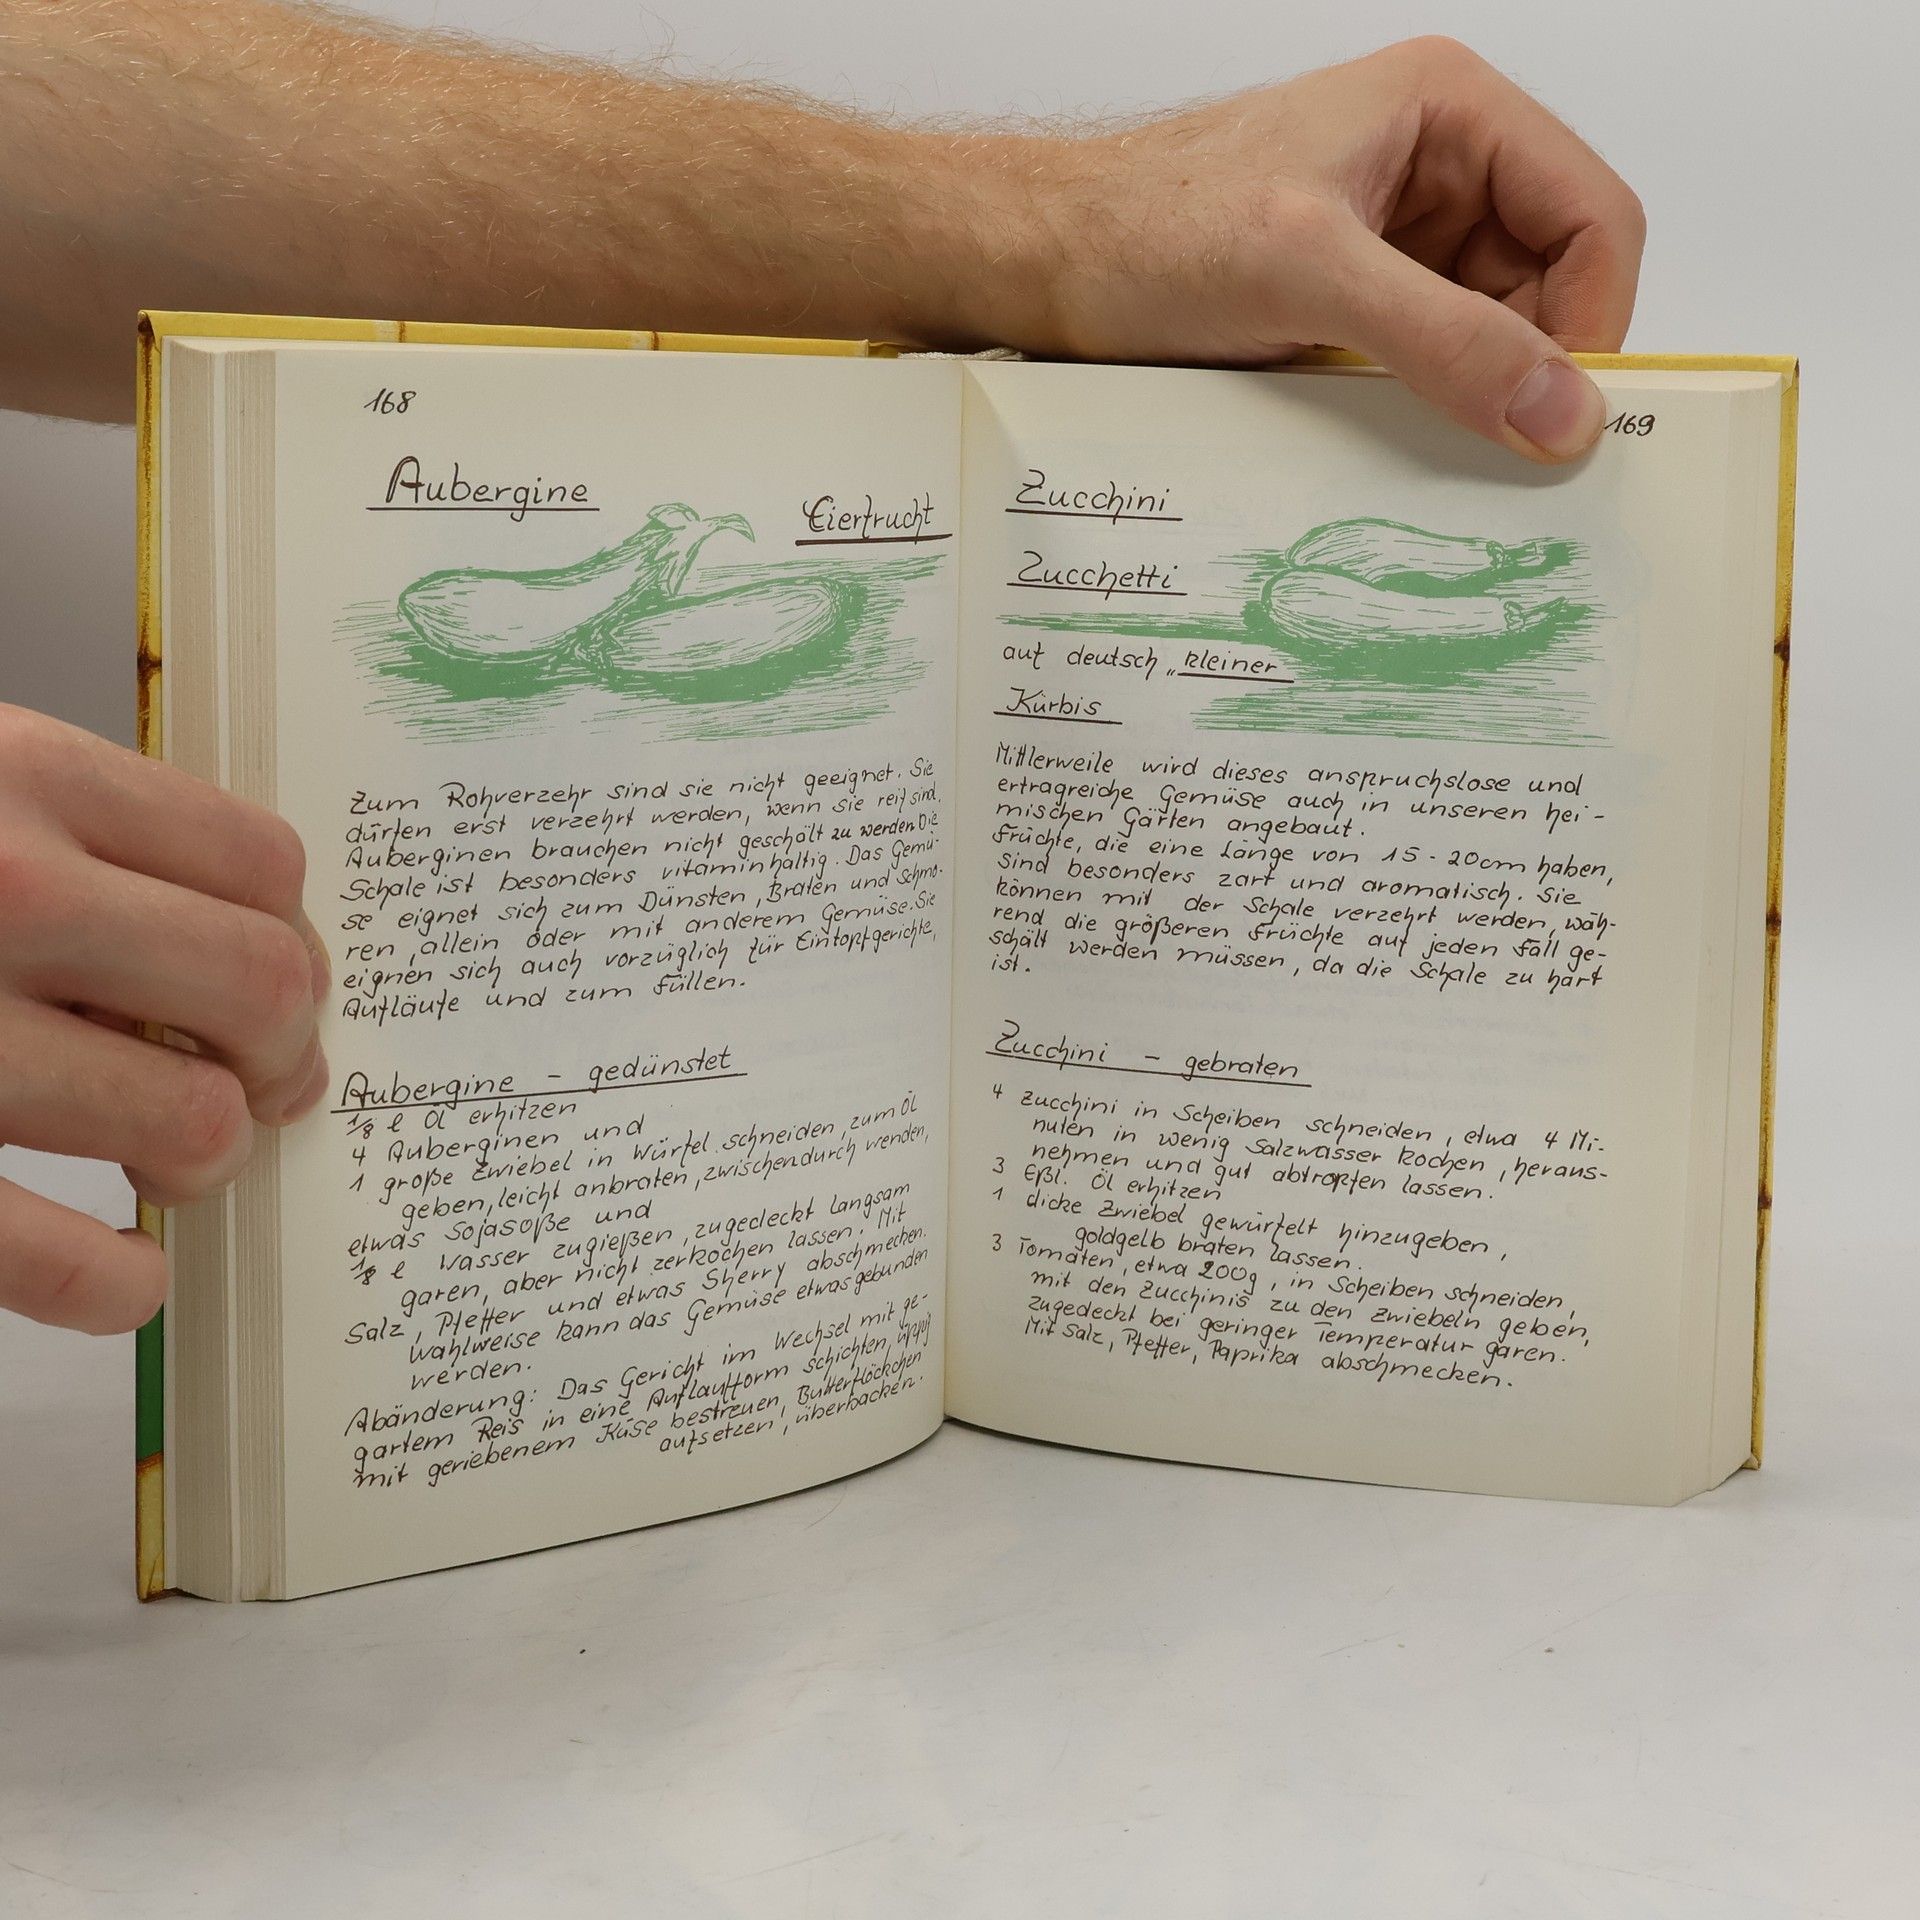 168
Aubergine
Eierfrucht
Zum Rohverzehr sind sie nicht geeignet. Sie
dürfen erst verzehrt werden, wenn sie reif sind.
Auberginen brauchen nicht geschält zu werden. Die
Schale ist besonders vitaminhaltig. Das Gemü-
se eignet sich zum Dünsten, Braten und Schmo-
ren, allein oder mit anderem Gemüse. Sie
eignen sich auch vorzüglich für Eintopfgerichte,
Aufläufe und zum Füllen.
Aubergine - gedünstet
1/8 l Öl erhitzen
4 Auberginen und
1 große Zwiebel in Würfel schneiden, zum Öl
geben, leicht anbraten, zwischendurch wenden,
etwas Sojasoße und
1/8 l Wasser zugießen, zugedeckt langsam
garen, aber nicht zerkochen lassen. Mit
Salz, Pfeffer und etwas Sherry abschmecken.
Wahlweise kann das Gemüse etwas gebunden
werden.
Abänderung: Das Gericht im Wechsel mit ge-
gartem Reis in eine Auflaufform schichten, üppig
mit geriebenem Käse bestreuen, Butterflöckchen
aufsetzen, überbacken.
169
Zucchini
Zucchetti
auf deutsch „kleiner
Kürbis
Mittlerweile wird dieses anspruchslose und
ertragreiche Gemüse auch in unseren hei-
mischen Gärten angebaut.
Früchte, die eine Länge von 15 - 20cm haben,
sind besonders zart und aromatisch. Sie
können mit der Schale verzehrt werden, wäh-
rend die größeren Früchte auf jeden Fall ge-
schält werden müssen, da die Schale zu hart
ist.
Zucchini - gebraten
4 Zucchini in Scheiben schneiden, etwa 4 Mi-
nuten in wenig Salzwasser kochen, heraus-
nehmen und gut abtropfen lassen.
3 Eßl. Öl erhitzen
1 dicke Zwiebel gewürfelt hinzugeben,
goldgelb braten lassen.
3 Tomaten, etwa 200g, in Scheiben schneiden,
mit den Zucchinis zu den Zwiebeln geben,
zugedeckt bei geringer Temperatur garen.
Mit Salz, Pfeffer, Paprika abschmecken.